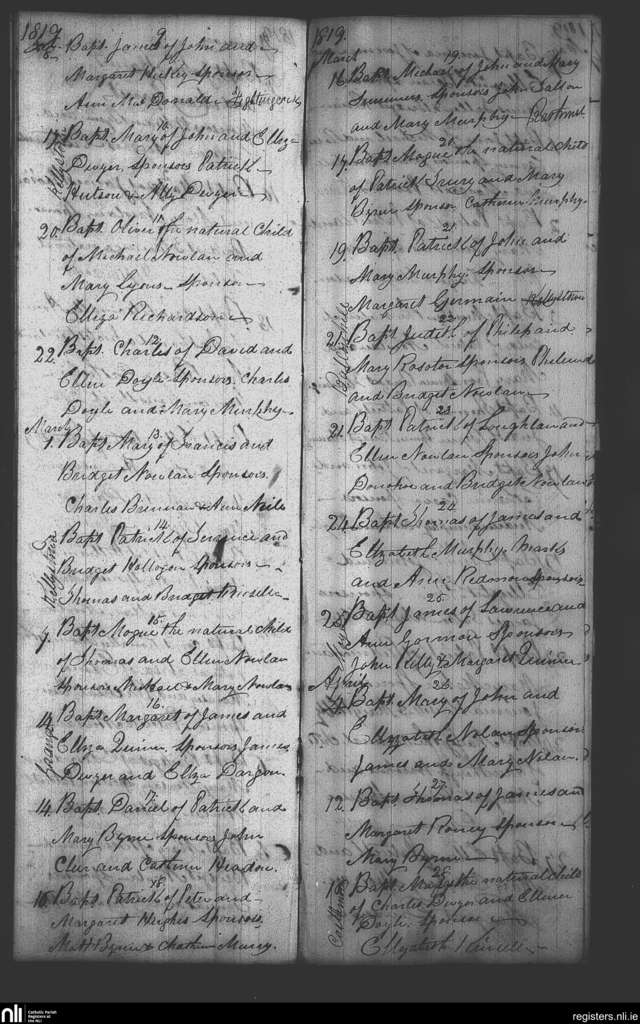 1819
9
Bapt. James of John and
Margaret Sponsor
Ann Mc Donald
10
17 Bapt. Mary of John and Elliza
Dwyer Sponsors Patrick
Hutson & Ally Dwyer
11
20 Bapt. Oliver the natural Child
of Michael Nowlan and
Mary Lyons Sponsor
Elliza Richardson
12
22 Bapt. Charles of David and
Ellen Doyle Sponsors Charles
Doyle and Mary Murphy
March
13
1. Bapt. Mary of Francis and
Bridget Nowlan Sponsors
Charles Brennan & Ann
14
Bapt. Patrick of Terrence and
Bridget Sponsors
Thomas and Bridget
15
7. Bapt. Mogue the natural Child
of Thomas and Ellen Nowlan
Sponsors Michael & Mary Nowlan
16
14. Bapt. Margaret of James and
Elliza Quinn Sponsors James
Dwyer and Elliza Dargon
17
14. Bapt. Daniel of Patrick and
Mary Byrne Sponsors John
and Cathern Headon
18
Bapt. Patrick of Peter and
Margaret Hughes Sponsors
Matt Byrne & Murry
1819.
March
19
16 Bapt. Michael of John and Mary
Summers Sponsors John
and Mary Murphy
17. Bapt. Mogue the natural Child
of Patrick and Mary
Byrne Sponsor Cathern Murphy
21
19. Bapt. Patrick of John and
Mary Murphy Sponsor
Margaret Germain
21. Bapt. Judith of Philip and
Mary Sponsors
and Bridget Nowlan
23
21. Bapt. Patrick of Loughlan and
Ellen Nowlan Sponsors John
Donohoe and Bridget Nowlan
24
24. Bapt. Thomas of James and
Ellizabeth Murphy Mark
and Ann Redmon Sponsors
25
25 Bapt. James of Lawrence and
Ann Gorman Sponsors
John & Margaret Quinn
April
26
Bapt. Mary of John and
Ellizabeth Nolan Sponsors
James and Mary Nolan
27
12. Bapt. Thomas of James and
Margaret Sponsor
Mary Byrne
28
Bapt. Mary the natural Child
of Charles Dwyer and Ellenor
Doyle Sponsor
Ellizabeth
nli
Catholic Parish
Registers at
the NLI
registers.nli.ie